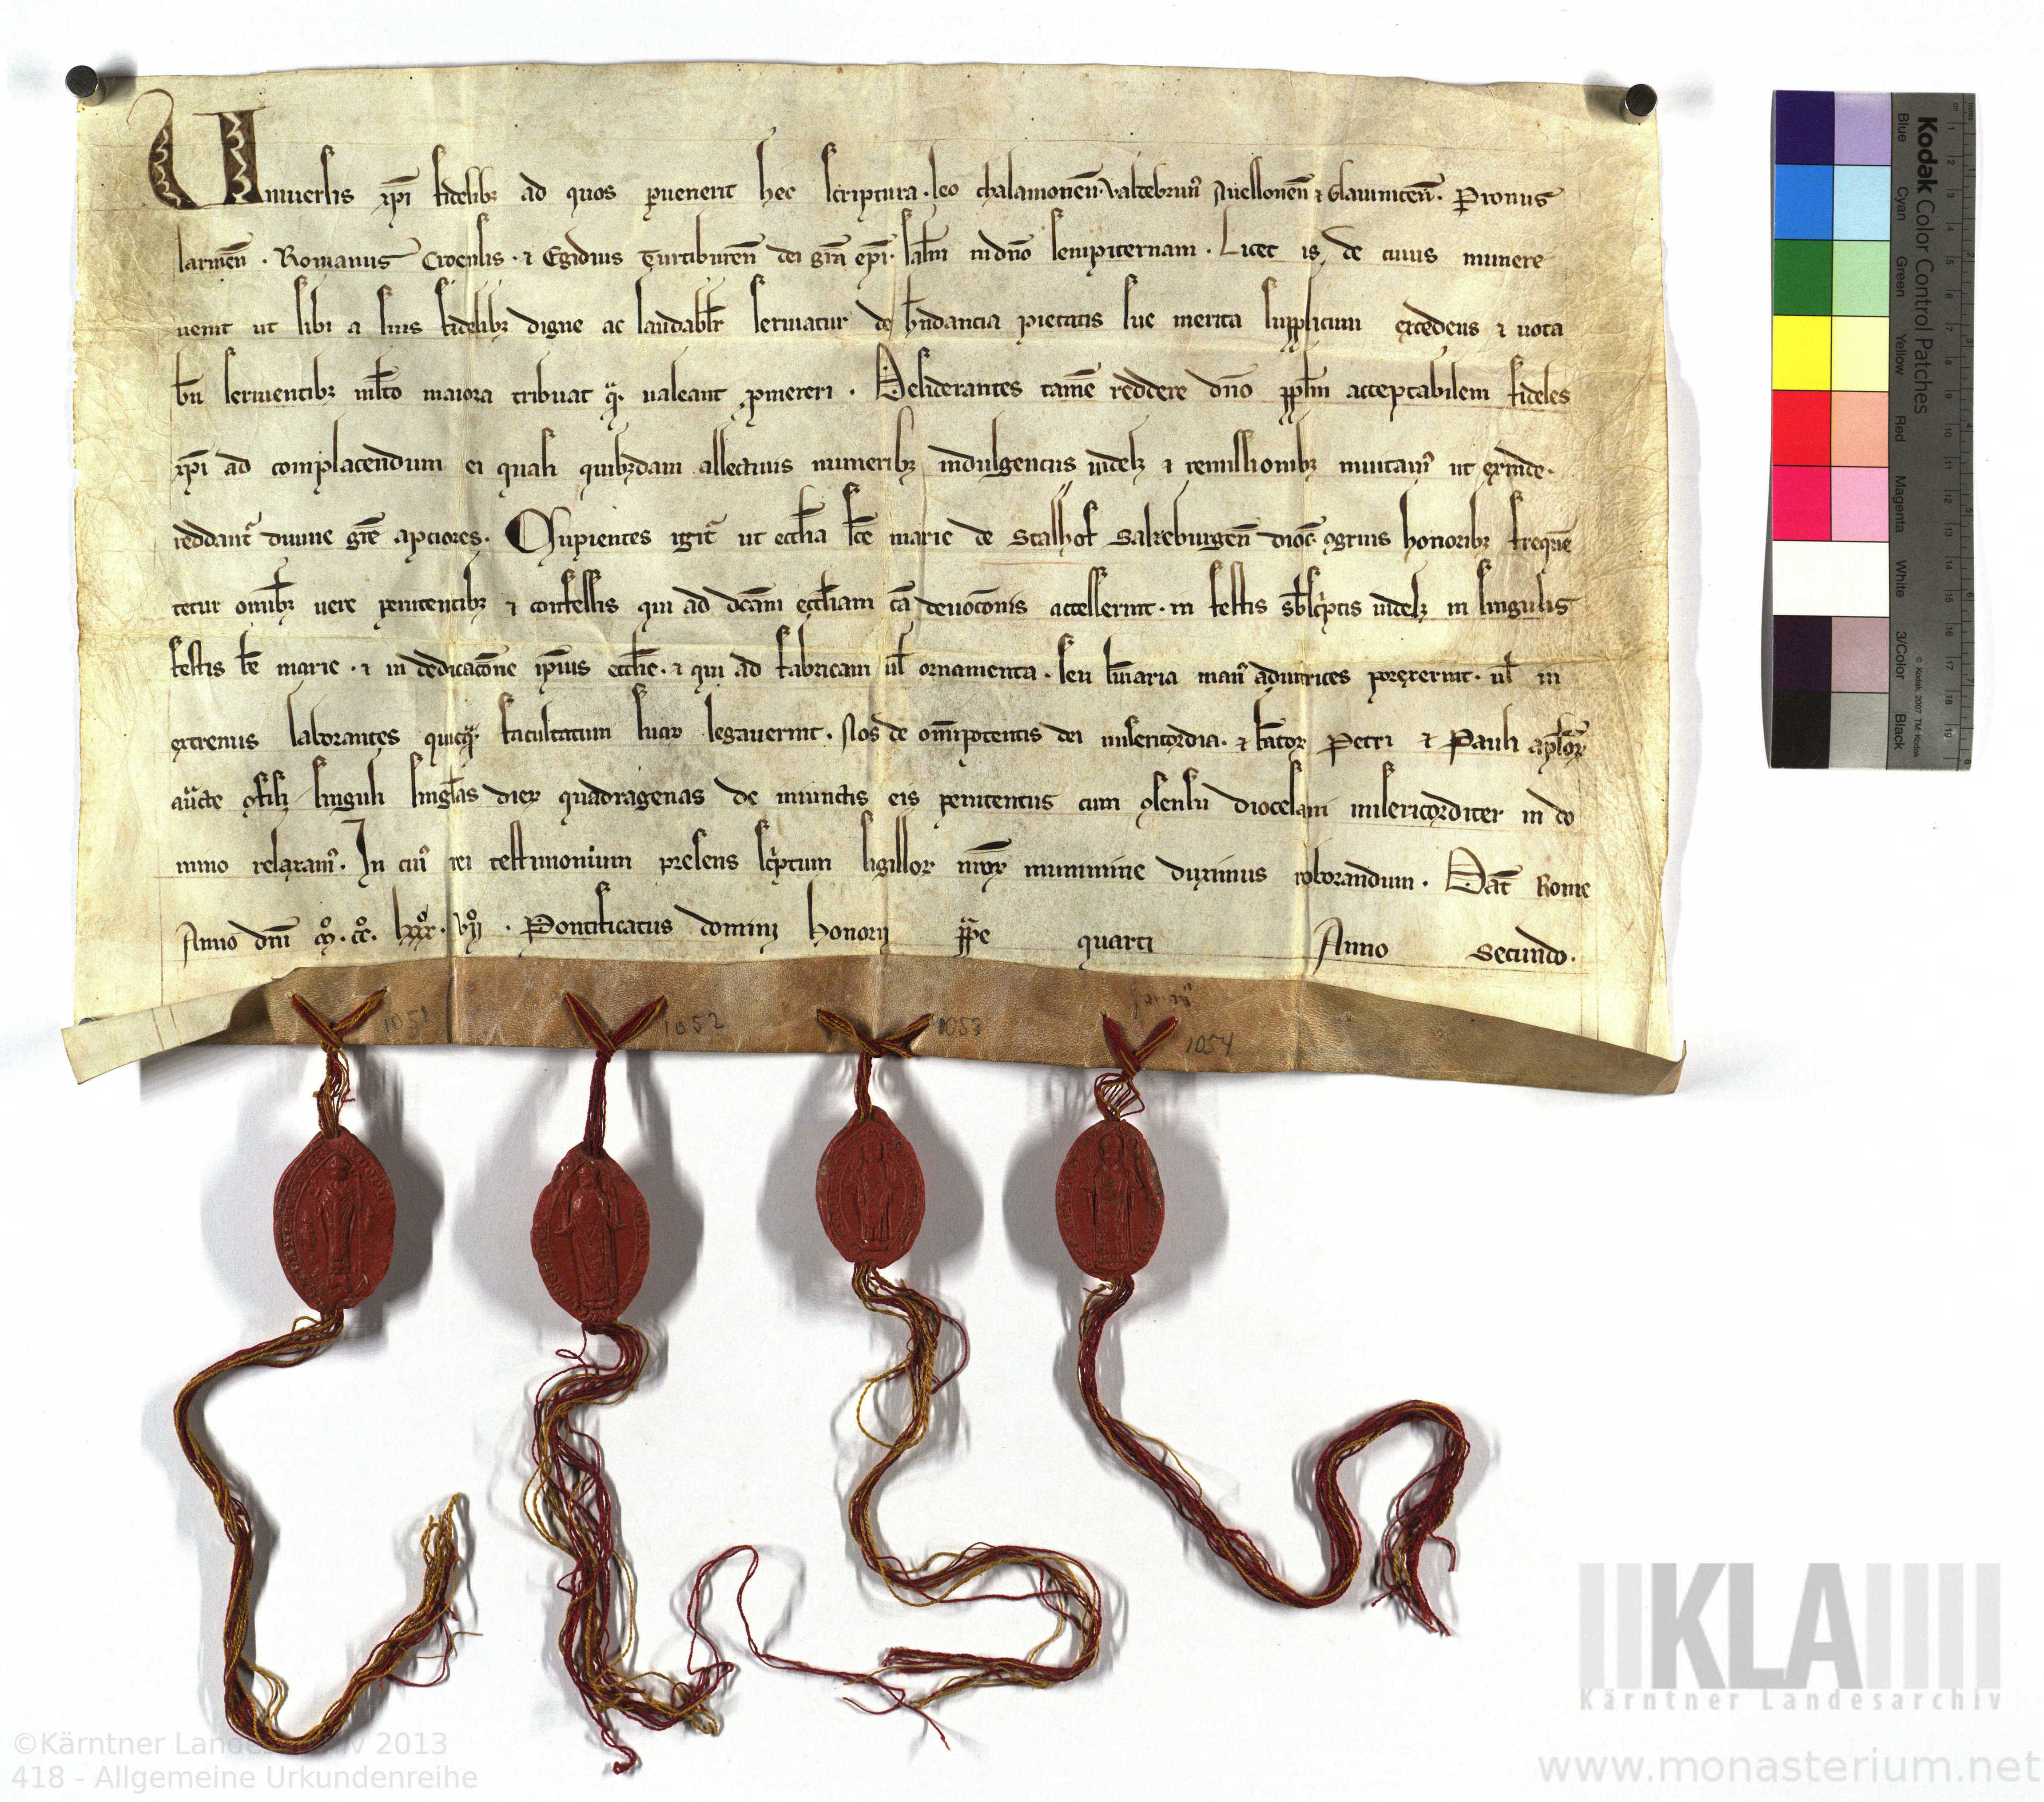 Uniuersis xp̄i fidelibꝫ ad quos ꝑuenerit hec scriptura. leo chalamonen̄. Valtebrun᷒ Auellonen̄ ⁊ Glauuiticen̄. Pronus
larinen̄. Romanus Croensis. ⁊ Egidius Turtibulen̄ dei gr̄a ep̄i. sal̄m in dn̄o sempiternam. Licet is de cuius munere
uenit ut sibi a suis fidelibꝫ digne ac laudabl̄r seruiatur de hn̄dancia pietatis sue merita supplicum excedens ⁊ uota
bn̄ seruientibꝫ ml̄to maiora tribuat qͣ. ualeant ꝓmereri. Desiderantes tamē reddere dn̄o ppl̄m acceptabilem fideles
xp̄i ad complacendum ei quasi quibꝫdam allectiuis muneribꝫ indulgenciis uidelꝫ ⁊ remissionibꝫ inuitam᷒ ut exinde.
reddant᷑ diuine gr̄e apciores. Cupientes igit᷑ ut eccl̄ia sc̄e marie de Stalhof Salzeburgen̄ dioc̄. ꝯgruis honoribꝫ frequē
tetur om̄ibꝫ uere penitentibꝫ ⁊ confessis qui ad dc̄am eccl̄iam cā deuoc̄onis accesserint. in festis sb̄sc͛ptis uidelꝫ in singulis
festis b̄e marie. ⁊ in dedicac̄one ip̄ius eccl̄ie. ⁊ qui ad fabricam ul̄ ornamenta. seu lūiaria man᷒ adiutrices porexerint. ul̄ in
extremis laborantes quicqͣ. facultatum suaꝝ legauerint. Nos de om̄ipotentis dei misericordia. ⁊ b̄atoꝝ Petri ⁊ Pauli apl̄oꝝ
auc̄te ꝯfisi singuli singl̄as dieꝝ quadragenas de iniunctis eis penitentiis cum ꝯsensu diocesani misericorditer in do
mino relaxam᷒. In cui᷒ rei testimonium presens sc͛ptum sigilloꝝ nr̄oꝝ munimine duximus roborandum. Dat̄ Rome
Anno dn̄i ᴍ̊. cc̊. lxxx̊. vij̊. Pontificatus domini Honorij pp̄e quarti Anno Secundo.
1051
1052
1053
1054
Kodak Color Control Patches
Blue Cyan Green Yellow Red Magenta White 3/Color Black
© Kodak, 2007 TM: Kodak
KLA
Kärntner Landesarchiv
©Kärntner Landesarchiv 2013
418 - Allgemeine Urkundenreihe
www.monasterium.net